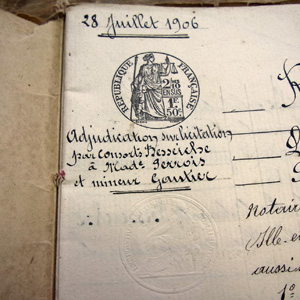 28 Juillet 1906
RÉPUBLIQUE FRANÇAISE
2/10 EN SUS
1F
50c
Adjudication sur licitation
par consorts
à Made
et mineur Gautier
Notair
Ille-e
aussi
1o